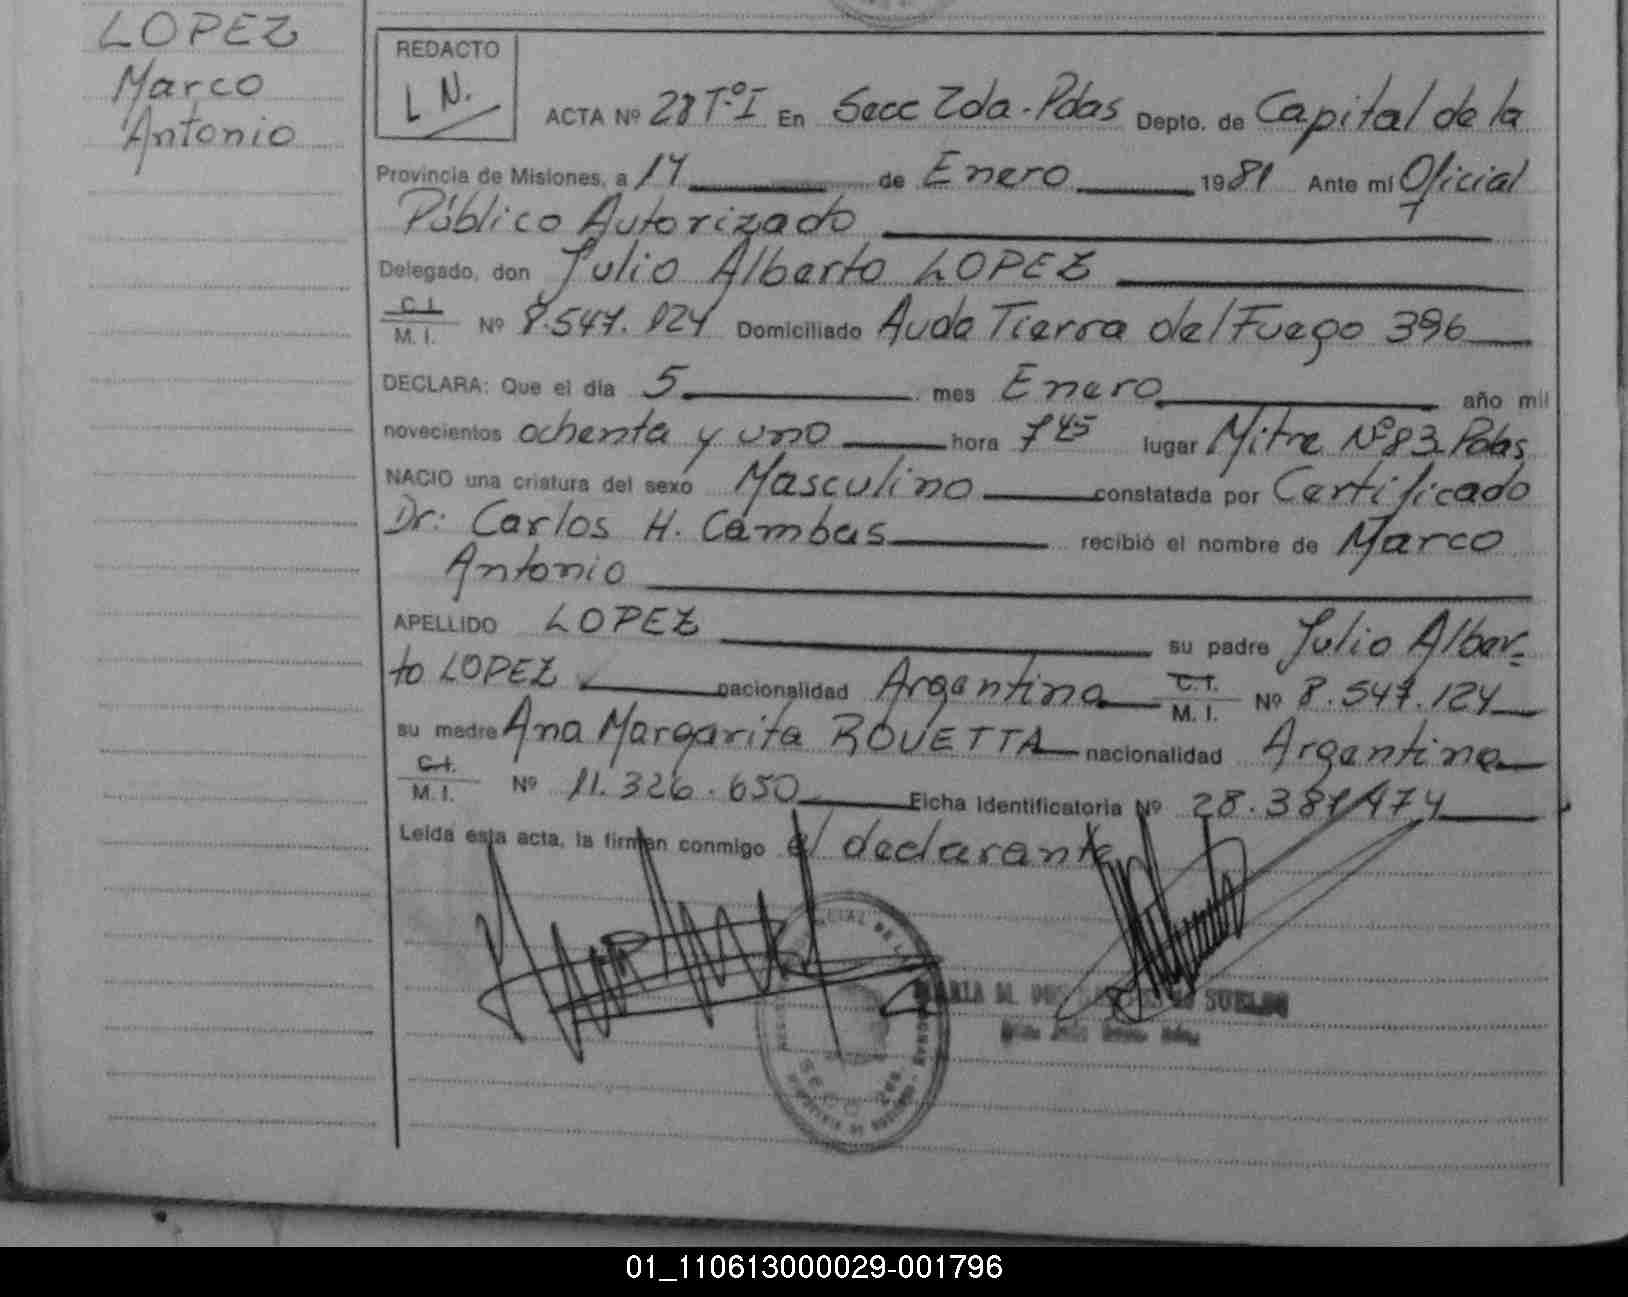 LOPEZ
Marco
Antonio
REDACTO
L N.
ACTA Nº 28 Tº I En Secc 2da - Pdas Depto. de Capital de la
Provincia de Misiones, a 14 de Enero 1981 Ante mi Oficial
Público Autorizado
Delegado, don Julio Alberto LOPEZ
C.I.
M. I. Nº 8.547.124 Domiciliado Avda Tierra del Fuego 396
DECLARA: Que el día 5 mes Enero año mil
novecientos ochenta y uno hora 7 45 lugar Mitre Nº 83 Pdas
NACIO una criatura del sexo Masculino constatada por Certificado
Dr: Carlos H. Cambas recibió el nombre de Marco
Antonio
APELLIDO LOPEZ su padre Julio Alber-
to LOPEZ nacionalidad Argentina C.I.
M. I. Nº 8.547.124
su madre Ana Margarita ROVETTA nacionalidad Argentina
C.I.
M. I. Nº 11.326.650 Ficha Identificatoria Nº 28.381.474
Leída esta acta, la firman conmigo el declarante
SECC 2da
01_110613000029-001796